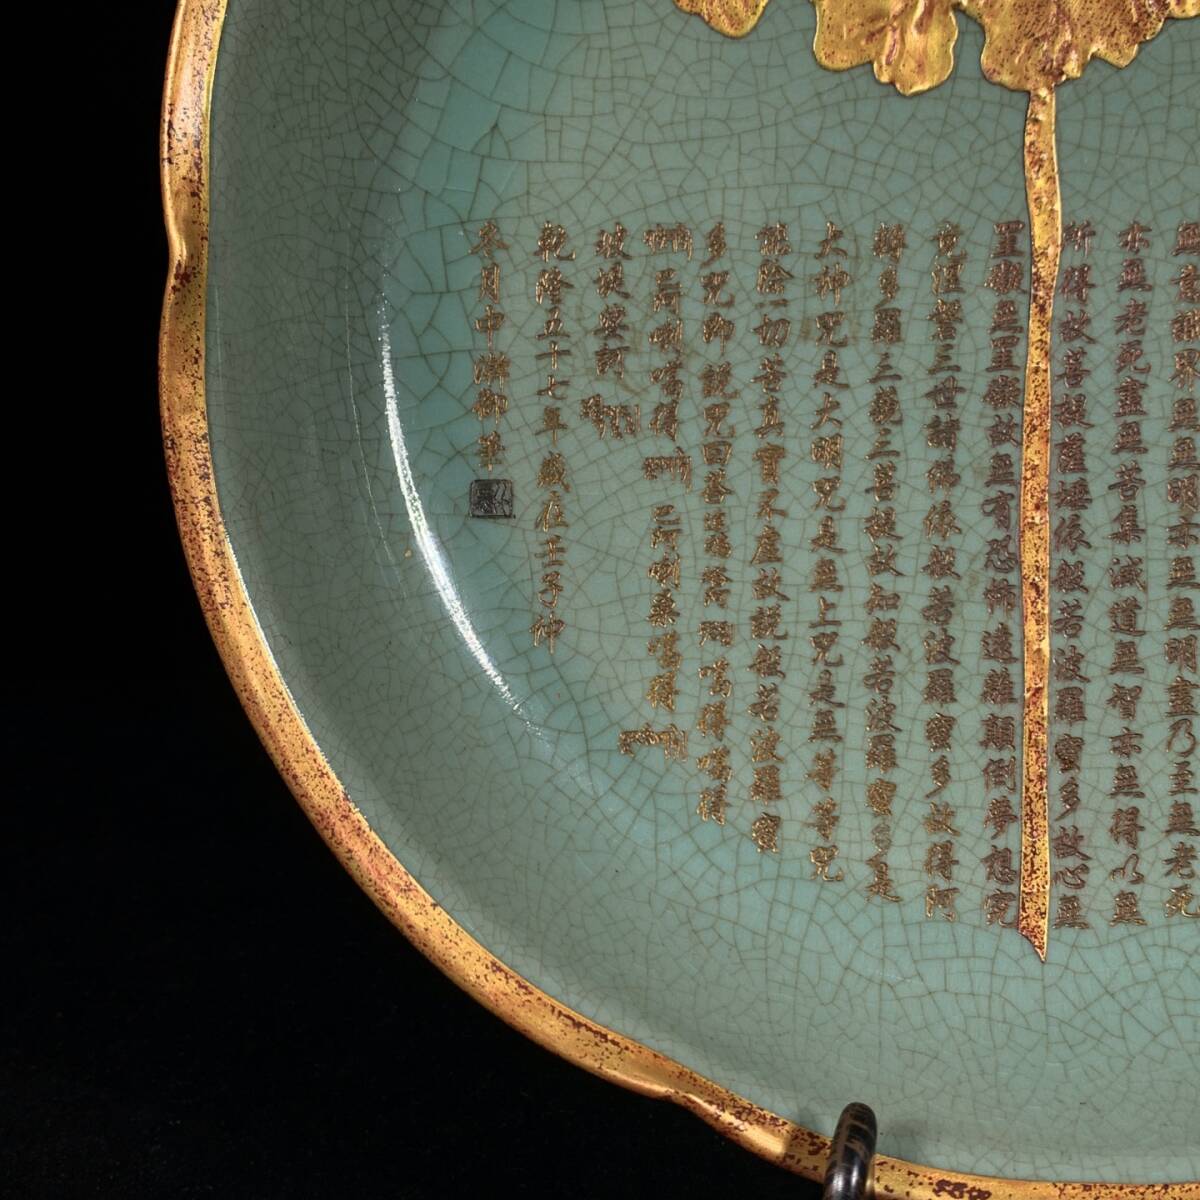 無意識界無無明亦無無明盡乃至無老死
亦無老死盡無苦集滅道無智亦無得以無
所得故菩提薩埵依般若波羅蜜多故心無
罣礙無罣礙故無有恐怖遠離顛倒夢想究
竟涅槃三世諸佛依般若波羅蜜多故得阿
耨多羅三藐三菩提故知般若波羅蜜多是
大神咒是大明咒是無上咒是無等等咒
能除一切苦真實不虛故說般若波羅蜜
多咒即說咒曰
乾隆五十七年歲在壬子仲
冬月中澣御筆